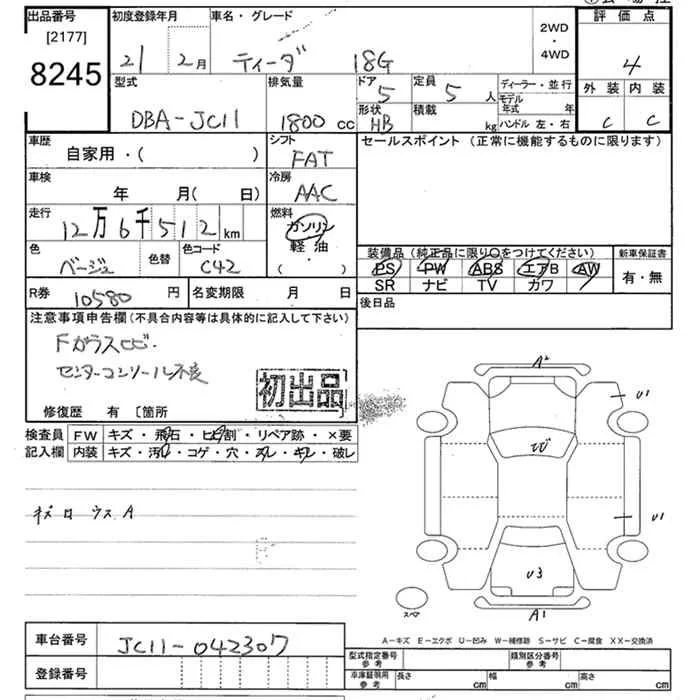 出品番号
[2177]
8245
初度登録年月
21 2月
車名・グレード
ティーダ 18G
2WD
・
4WD
評価点
4
外装 内装
C C
型式
DBA-JC11
排気量
1800 cc
ドア
5
定員
5人
形状
HB
積載
kg
ディーラー・並行
モデル
年式 年
ハンドル 左・右
車歴
自家用・( )
シフト
FAT
車検
年 月( 日)
冷房
AAC
走行
12万6千512km
燃料
ガソリン
軽油
( ・ )
色
ベージュ
色替
色コード
C42
R券 10580 円
名変期限 月 日
セールスポイント(正常に機能するものに限ります)
装備品(純正品に限り○をつけてください)
PS PW ABS エアB AW
SR ナビ TV カワ
新車保証書
有・無
後日品
注意事項申告欄(不具合内容等は具体的に記入して下さい)
Fガラスヒビ.
センターコンソール不良
初出品
修復歴 有 〔箇所
検査員
記入欄
FW キズ・飛石・ヒビ割・リペア跡・×要
内装 キズ・汚れ・コゲ・穴・スレ・キレ・破レ
キズ ロ ウス A
A2
U1
W
U1
U3
A1
スペア
A-キズ E-エクボ U-凹み W-補修跡 S-サビ C-腐食 XX-交換済
車台番号
JC11-042307
登録番号
型式指定番号
参考
類別区分番号
参考
車庫証明用
参考
長さ cm
幅 cm
高さ cm